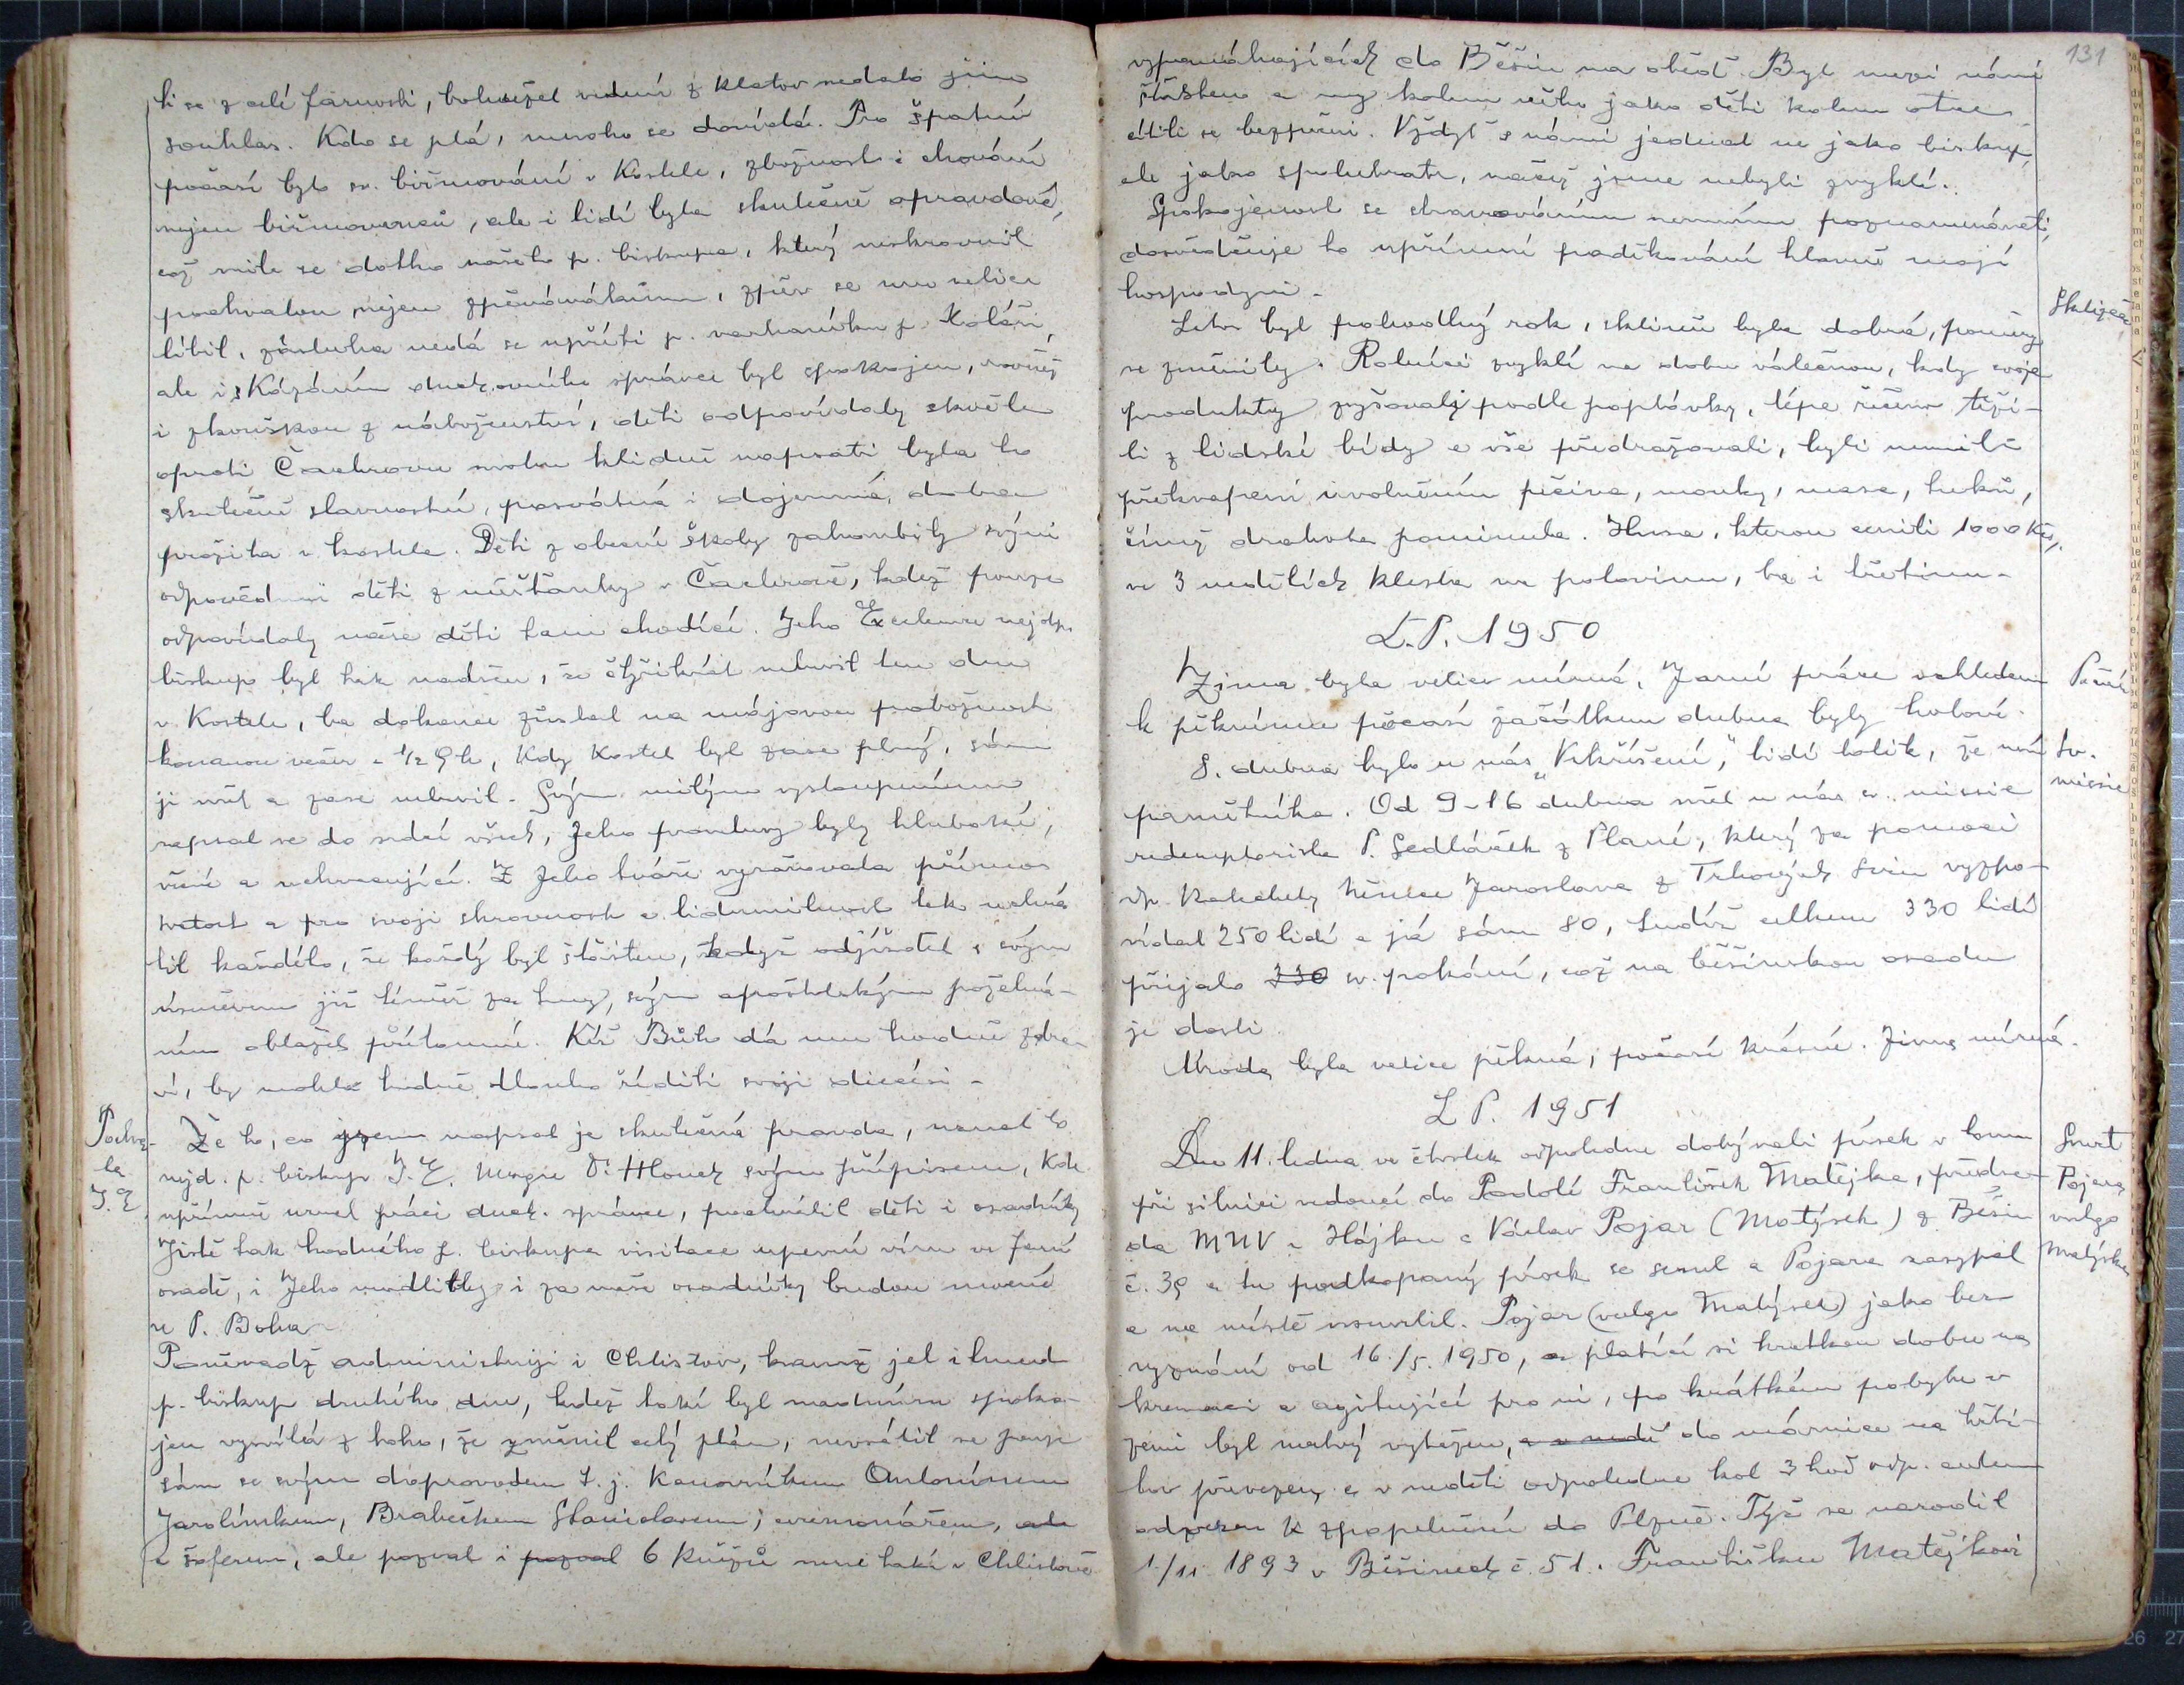 li se z celé farnosti, bohužel vedení z Klatov nedalo jim
souhlas. Kdo se ptá, mnoho se dovídá. Pro špatné
počasí bylo sv. biřmování v Kostele, zbožnost i chování
nejen biřmovanců, ale i lidí byla skutečně opravdová,
což mile se dotklo našeho p. biskupa, který neskrblil
pochvalou nejen zpěvákům, zpěv se mu velice
líbil, zásluha nedá se upříti p. varhaníku p. Koláři,
ale i s Kázáním duchovního správce byl spokojen, rovněž
i zkouškou z náboženství, děti odpovídaly skvěle
oproti Čachrovu mohu klidně napsati byla to
skutečně slavnostní, posvátná i dojemná doba
prožita v kostele. Děti z obecné školy zahanbily svými
odpověďmi děti z měšťanky v Čachrově, kdež pouze
odpovídaly naše děti tam chodící. Jeho Excelence nejdp.
biskup byl tak nadšen, že čtyřikrát mluvil ten den
v Kostele, ba dokonce zůstal na májovou pobožnost
konanou večer v 1/2 9 h, Kdy Kostel byl zase plný, sám
ji měl a zase mluvil. Svým milým vystoupením
zapsal se do srdcí všech, Jeho promluvy byly hluboké,
věcné a uchvacující. Z Jeho tváře vyzařovala přímo
svatost a pro svoji skromnost a lidumilnost tak uchvá
til každého, že každý byl šťasten, když odjížděl s svým
úsměvem již téměř za tmy, svým apoštolským požehná-
ním oblažil přítomné. Kéž Bůh dá mu hodně zdra-
ví, by mohl hodně dlouho říditi svoji diecési -
Pochva-
la
J. E.
Že to, co jsem napsal je skutečná pravda, uznal to
nejd. p. biskup J. E. Msgre Dr Hlouch svým přípisem, Kde
upřímně uznal práci duch. správce, pochválil děti i osadníky
Jistě tak hodného p. biskupa visitace upevní víru ve farní
osadě, i Jeho modlitby i za naše osadníky budou
u P. Boha -
Poněvadž administruji i Chlistov, kamž jel ihned
p. biskup druhého dne, kdež také byl nadmíru spoko-
jen vysvítá z toho, že změnil celý plán, nevrátil se pouze
sám se svým doprovodem t. j. Kanovníkem Antonínem
Jarolímkem, Brabečkem Stanislavem, ceremonářem, ale
a šoferem, ale pozval i pozval 6 Kněžů mne také v Chlistově
131
vypomáhajících do Běšin na oběd. Byl mezi námi
šťasten a my kolem něho jako děti kolem otce
cítili se bezpečni. Vždyť s námi jednal ne jako biskup,
ale jako spolubratr, načež jsme nebyli zvyklí.
Spokojenost se stravováním nemíním poznamenávati,
dosvědčuje to upřímné poděkování hlavně mojí
hospodyni -
Sklizeň
Letos byl pohodlný rok, sklizeň byla dobrá, poměry
se změnily. Rolníci zvyklí na dobu válečnou, kdy svoje
produkty zvyšovaly podle poptávky, lépe řečeno těži-
li z lidské bídy a vše předražovali, byli nemile
překvapeni uvolněním pečiva, mouky, masa, tuků,
čímž drahota pominula. Husa, kterou cenili 1000 Kčs,
ve 3 nedělích klesla na polovinu, ba i třetinu -
L. P. 1950
Počasí
Zima byla velice mírná, Jarní práce vzhledem
k pěknému počasí začátkem dubna byly hotové.
Sv.
missie
8. dubna bylo u nás "Vzkříšení", lidí tolik, že není
pamětníka. Od 9-16 dubna měl u nás sv. missie
redemptorista P. Sedláček z Plané, který za pomoci
dp. Jaroslava z Trhových Svin vyzpo-
vídal 250 lidí a já sám 80, tudíž celkem 330 lidí
přijalo 330 sv. pokání, což na běšinskou osadu
je dosti.
Úroda byla velice pěkná, počasí krásné. Zima mírná.
L P. 1951
Smrt
Pojara
vulgo
Matýska
Dne 11. ledna ve čtvrtek odpoledne dobývali písek v lomu
při silnici vedoucí do Podolí František Matějka, předse-
da MNV v Hájku a Václav Pojar (Matýsek) z Běšin
č. 39 a tu podkopaný písek se sesul a Pojara zasypal
a na místě usmrtil. Pojar (vulgo Matýsek) jako bez
vyznání od 16./5. 1950, a platící si krátkou dobu na
kremaci a agitující pro ni, po krátkém pobytu v
zemi byl mrtvý vytažen, a v neděli do márnice na hřbi-
tov převezen, a v neděli odpoledne kol 3 hod odp. autem
odvezen k zpopelnění do Plzně. Týž se narodil
1/11 1893 v Běšinech č. 51. Františku Matějkovi